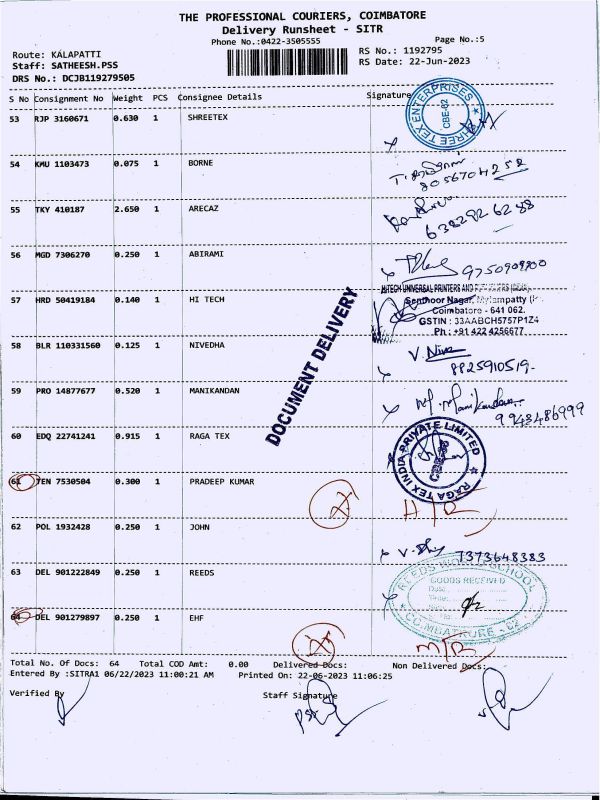 THE PROFESSIONAL COURIERS, COIMBATORE
Delivery Runsheet - SITR
Phone No.:0422-3505555
Page No.:5
Route: KALAPATTI
RS No.: 1192795
Staff: SATHEESH.PSS
RS Date: 22-Jun-2023
DRS No.: DCJB119279505
S No Consignment No Weight PCS Consignee Details Signature
53 RJP 3160671 0.630 1 SHREETEX
SHREE TEX ENTERPRISES
CBE-62
54 KMU 1103473 0.075 1 BORNE
8056704252
55 TKY 410187 2.650 1 ARECAZ
6382826288
56 MGD 7306270 0.250 1 ABIRAMI
9750909900
57 HRD 50419184 0.140 1 HI TECH
HITECH UNIVERSAL PRINTERS AND
Senthoor Nagar, Mylampatty
Coimbatore - 641 062.
GSTIN : 33AABCH5757P1Z4
Ph : +91 422 4256677
DOCUMENT DELIVERY
58 BLR 110331560 0.125 1 NIVEDHA
V. Nive
8825910519
59 PRO 14877677 0.520 1 MANIKANDAN
Manikandan
9943486999
60 EDQ 22741241 0.915 1 RAGA TEX
RAGA TEX INDIA PRIVATE LIMITED
61 TEN 7530504 0.300 1 PRADEEP KUMAR
62 POL 1932428 0.250 1 JOHN
7373648383
63 DEL 901222849 0.250 1 REEDS
REEDS WORLD SCHOOL
GOODS RECEIVED
Date
COIMBATORE - 62
64 DEL 901279897 0.250 1 EHF
Total No. Of Docs: 64 Total COD Amt: 0.00 Delivered Docs: Non Delivered Docs:
Entered By :SITRA1 06/22/2023 11:00:21 AM Printed On: 22-06-2023 11:06:25
Verified By Staff Signature